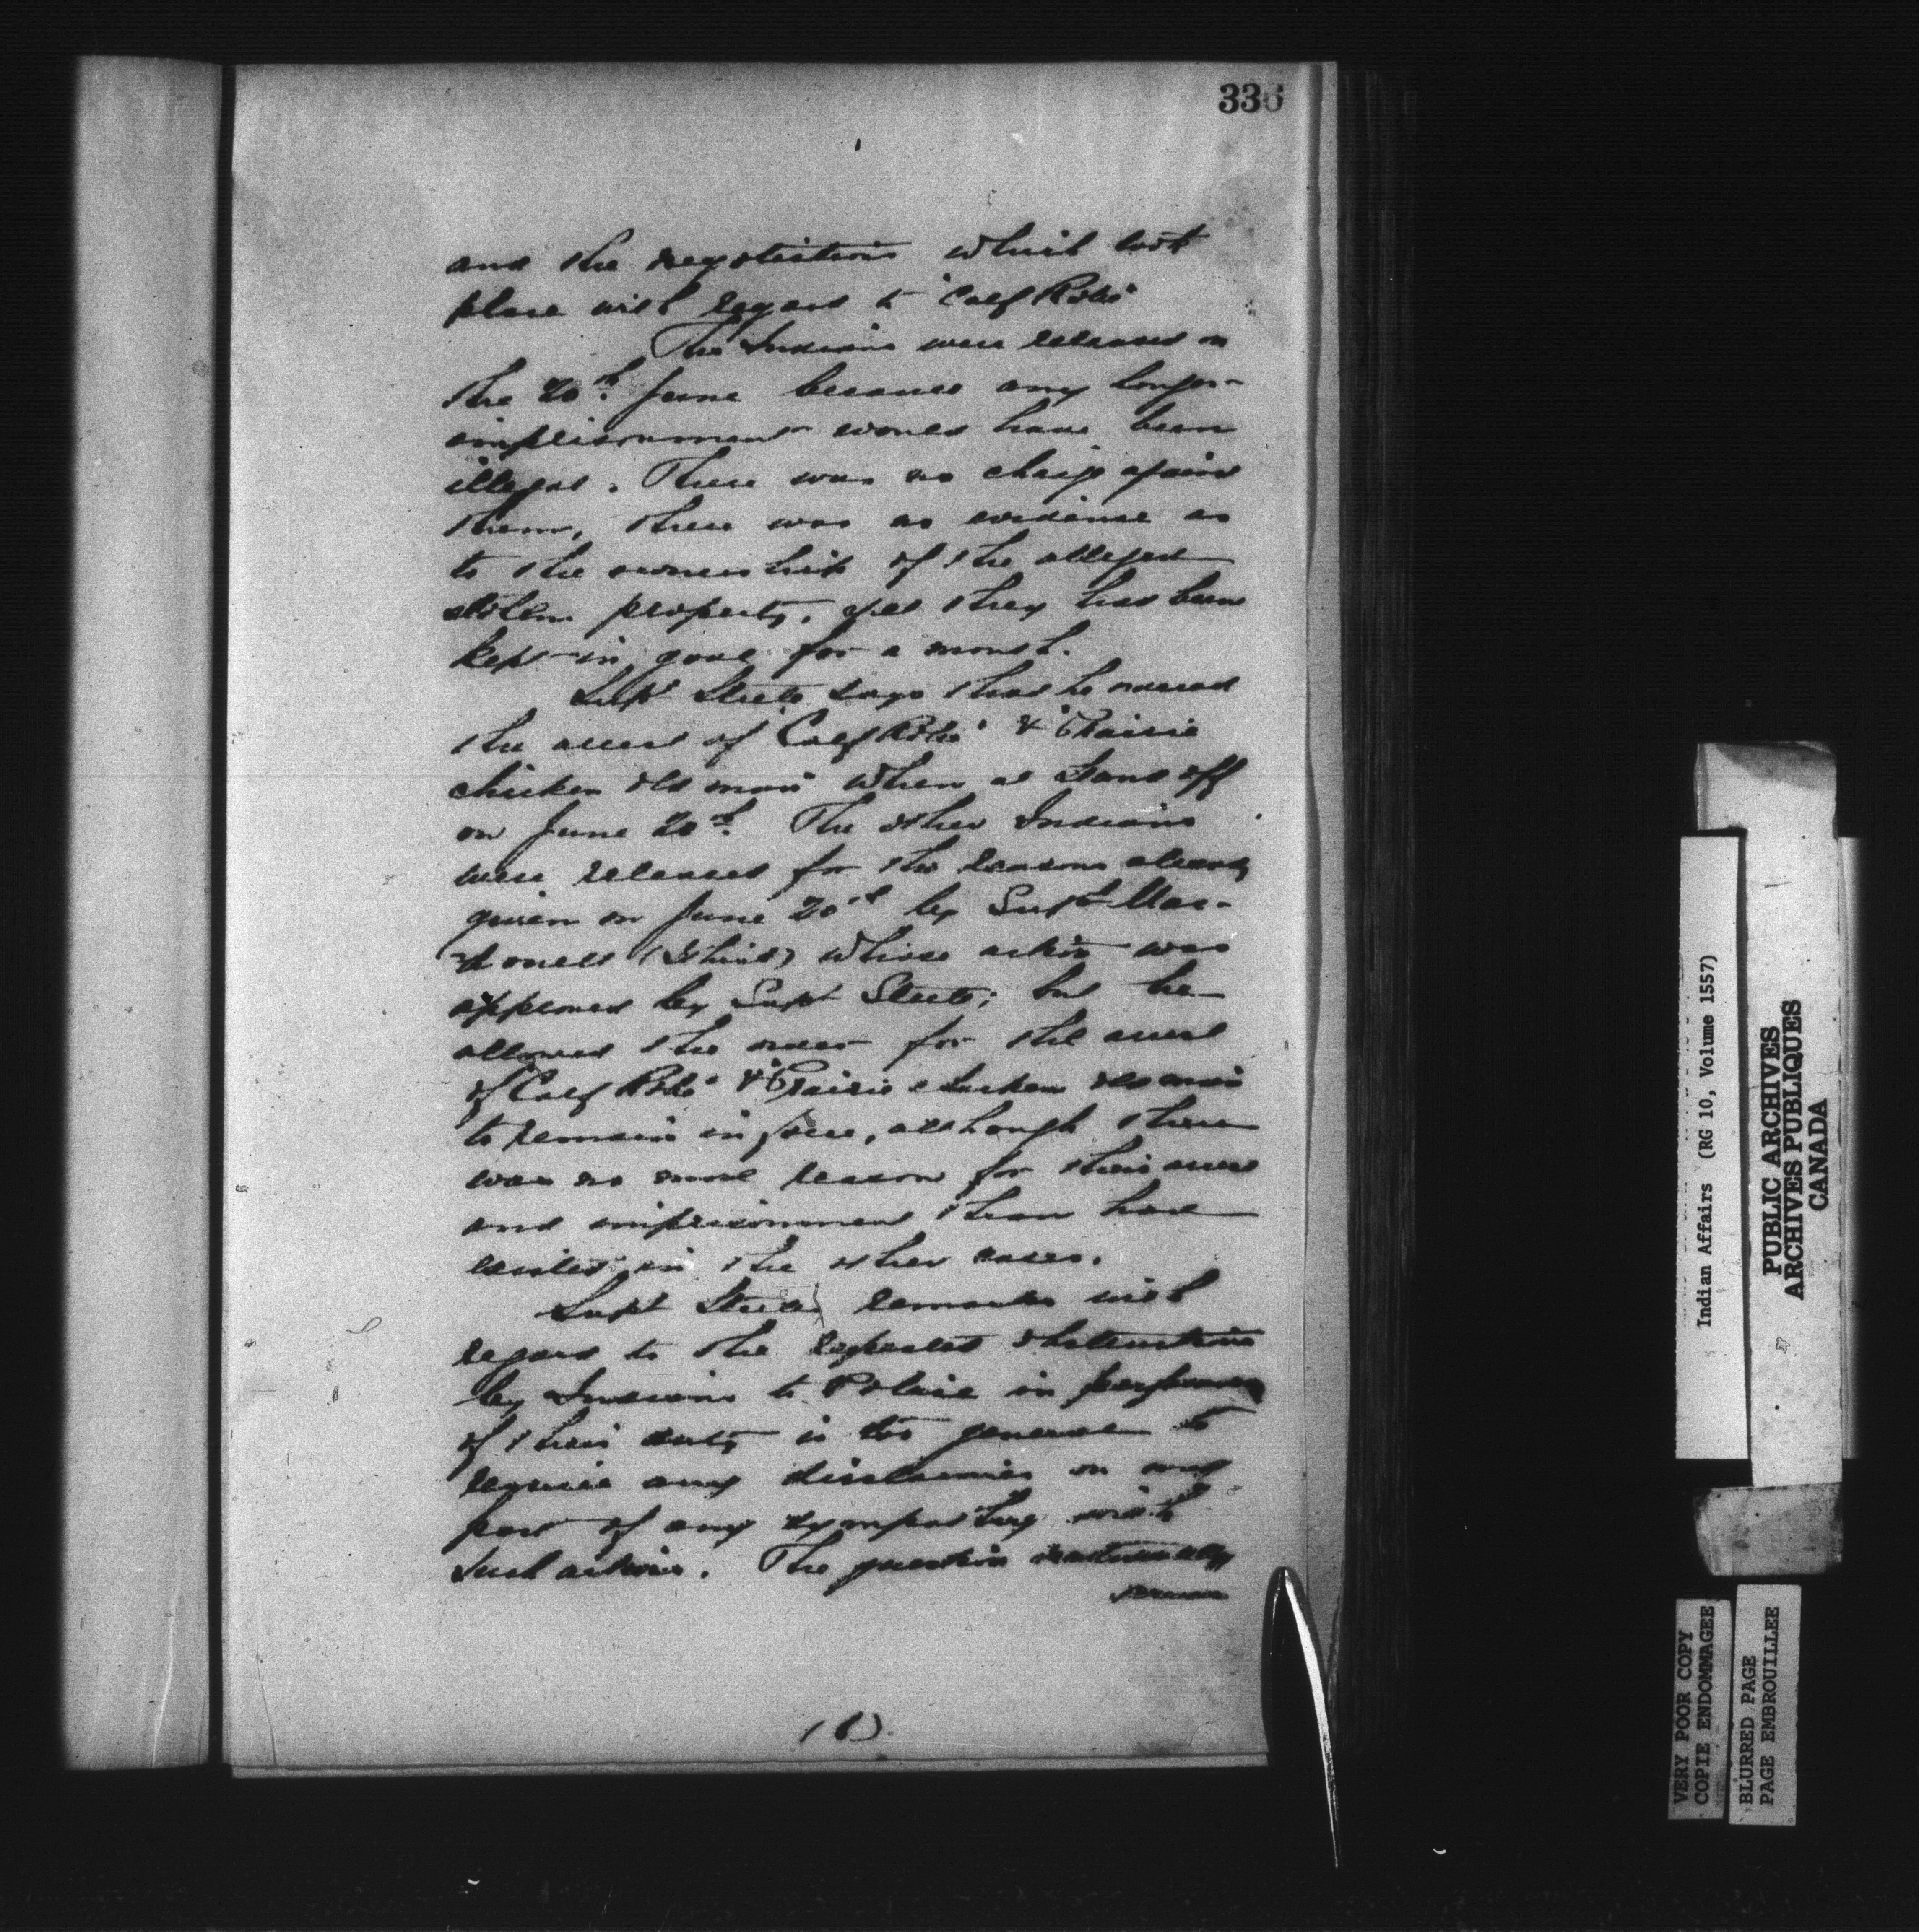 336
and the negotiations which took
place with regard to "Calf Robe"
The Indians were released on
the 20th June because any longer
imprisonment would have been
illegal. There was no charge against
them, there was no evidence as
to the ownership of the alleged
stolen property, yet they had been
kept in gaol for a month.
Supt Steele says that he ordered
the arrest of "Calf Robe" & "Prairie
chicken old man" when at Stand off
on June 20th. The other Indians
were released for the reasons already
given on June 20th by Supt Mac-
donell (I think) whose action was
approved by Supt Steele; but he
allowed the order for the arrest
of "Calf Robe" & "Prairie chicken old man"
to remain in force, although there
was no more reason for their arrest
and imprisonment than had
existed in the other cases.
Supt Steele's remarks with
regard to the reported obstructions
by Indians to Police in performance
of their duty is too general to
require any disclaimer on our
part of any sympathy with
such actions. The question naturally
(6)
Indian Affairs (RG 10, Volume 1557)
PUBLIC ARCHIVES
ARCHIVES PUBLIQUES
CANADA
VERY POOR COPY
COPIE ENDOMMAGEE
BLURRED PAGE
PAGE EMBROUILLEE